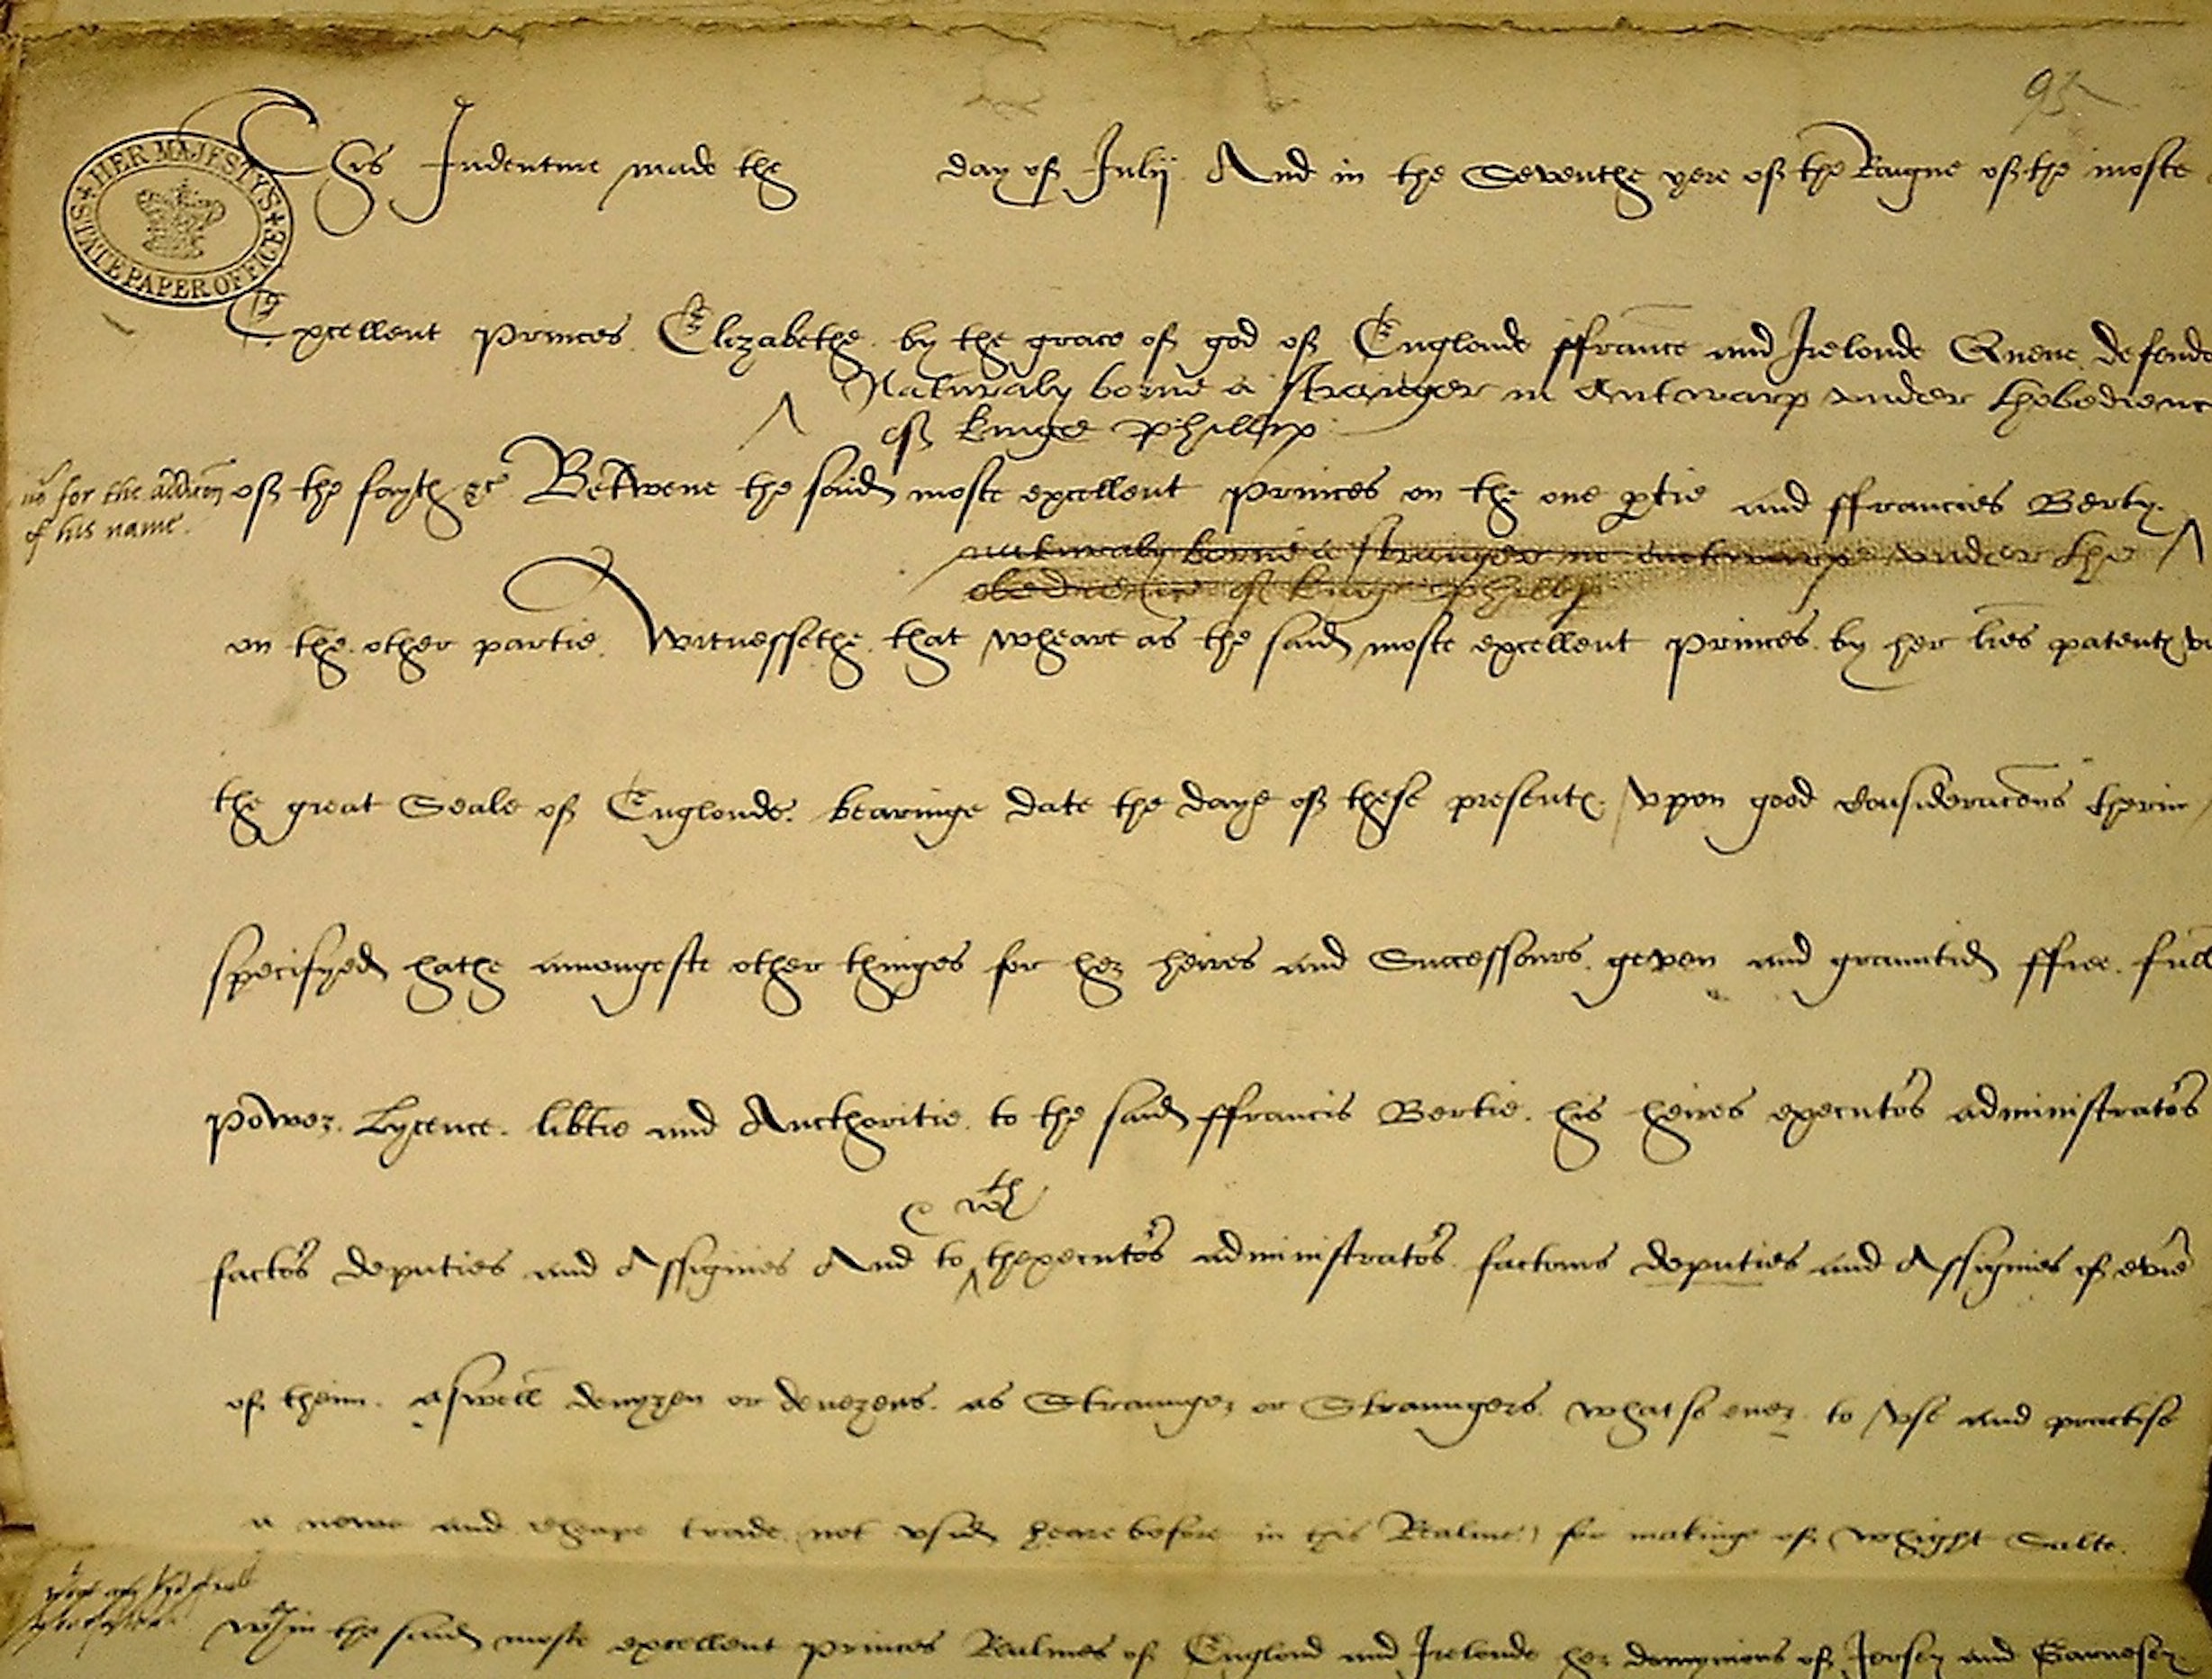 95
HER MAJESTY'S STATE PAPER OFFICE
This Indenture made the day of Julij And in the Seventhe yere of the Raigne of the moste
Excellent Princes Elizabethe by the grace of god of Englonde ffraunce and Irelonde Quene defende
Naturaly borne a straunger in Antwarp vnder thobedienc
of kinge Phillip
for the addicon
of his name.
of the fayth &c Betwene the said moste excellent Princes on the one ptie and ffrancies Berty.
naturaly borne a straunger in antwarpe vnder the
obedience of kinge Phillip
on the other partie. Witnessethe that wheare as the said moste excellent Princes by her lres patent
the great Seale of Englonde. bearinge date the daye of these present. vpon good consideracons therin
specifyed hathe amongeste other thinges for her heires and Successours. geven and grauntid ffree. full
Power. Lycence. libtie and Aucthoritie. to the said ffrancis Bertie. his heires executors administrators
wth
factors deputies and Assignies And to thexecutors administrators factours deputies and Assignies of evrie
of theim. aswell denyzen or denezens. as Straunger or Straungers. whatsoever to vse and practise
a newe and cheape trade (not vsid heare before in this Realme) for makinge of whight Salte.
wthin the said moste excellent Princes Realmes of Englond and Irelonde her domynions of Jersey and Garnesey